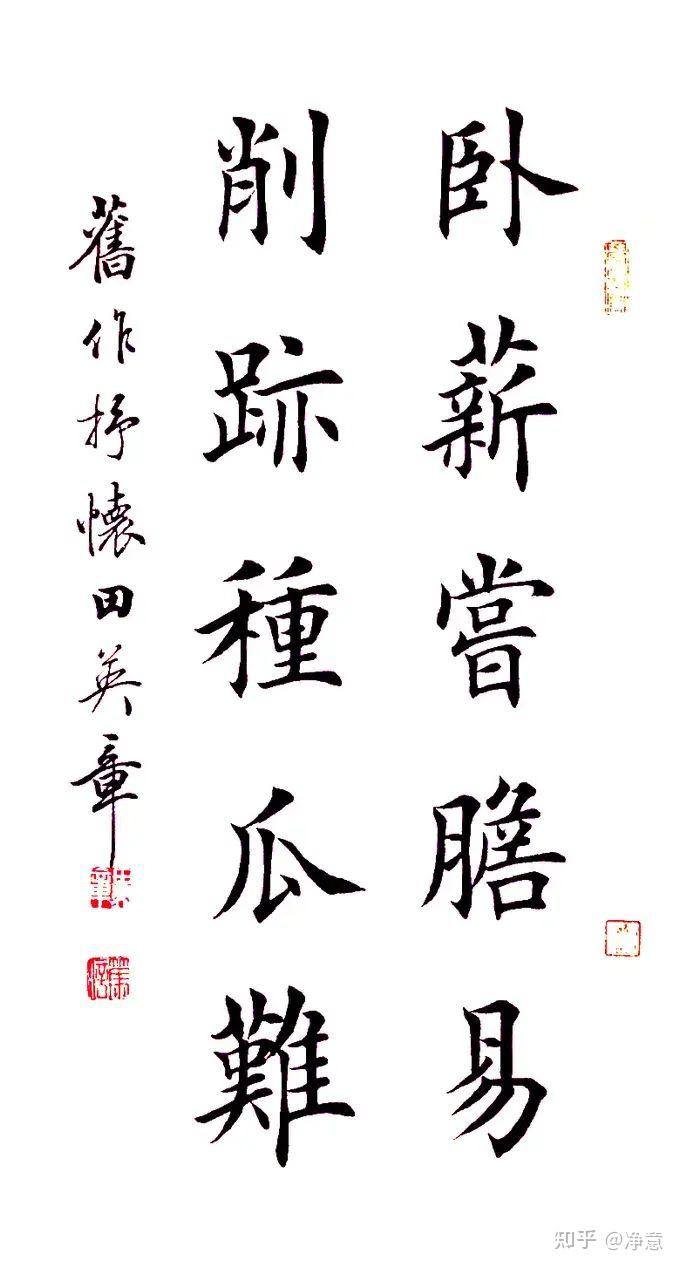 卧薪嘗膽易
削跡種瓜難
舊作抒懷田英章
知乎 @净意